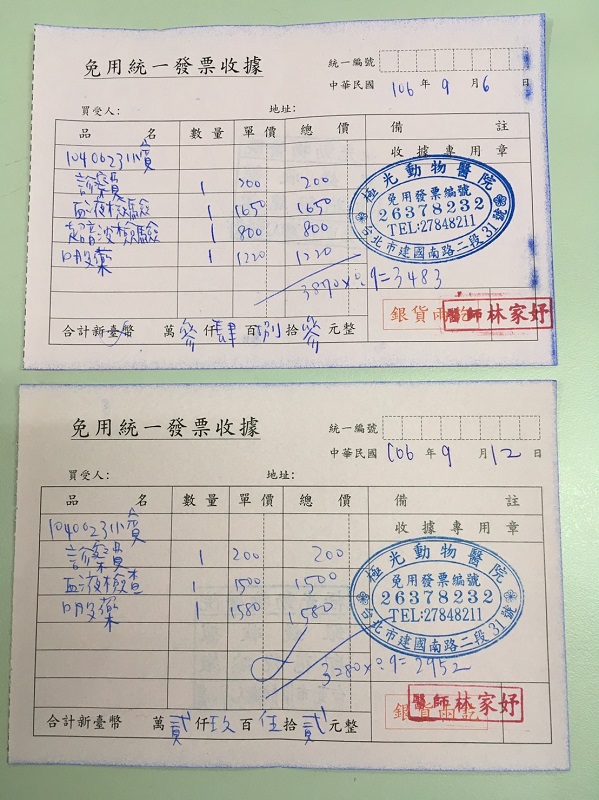 免用統一發票收據
統一編號
中華民國 106 年 9 月 6 日
買受人： 地址：
品 名 數量 單價 總價 備 註
收據專用章
10400231小寶
診察費 1 200 200
血液檢驗 1 1650 1650
超音波檢驗 1 800 800
口服藥 1 1220 1220
3870×0.9=3483
極光動物醫院
免用發票編號
26378232
TEL:27848211
台北市建國南路二段31號
銀貨兩訖
醫師林家妤
合計新臺幣 萬 參 仟 肆 百 捌 拾 參 元整
免用統一發票收據
統一編號
中華民國 106 年 9 月 12 日
買受人： 地址：
品 名 數量 單價 總價 備 註
收據專用章
10400231小寶
診察費 1 200 200
血液檢查 1 1500 1500
口服藥 1 1580 1580
3280×0.9=2952
極光動物醫院
免用發票編號
26378232
TEL:27848211
台北市建國南路二段31號
銀貨兩訖
醫師林家妤
合計新臺幣 萬 貳 仟 玖 百 伍 拾 貳 元整